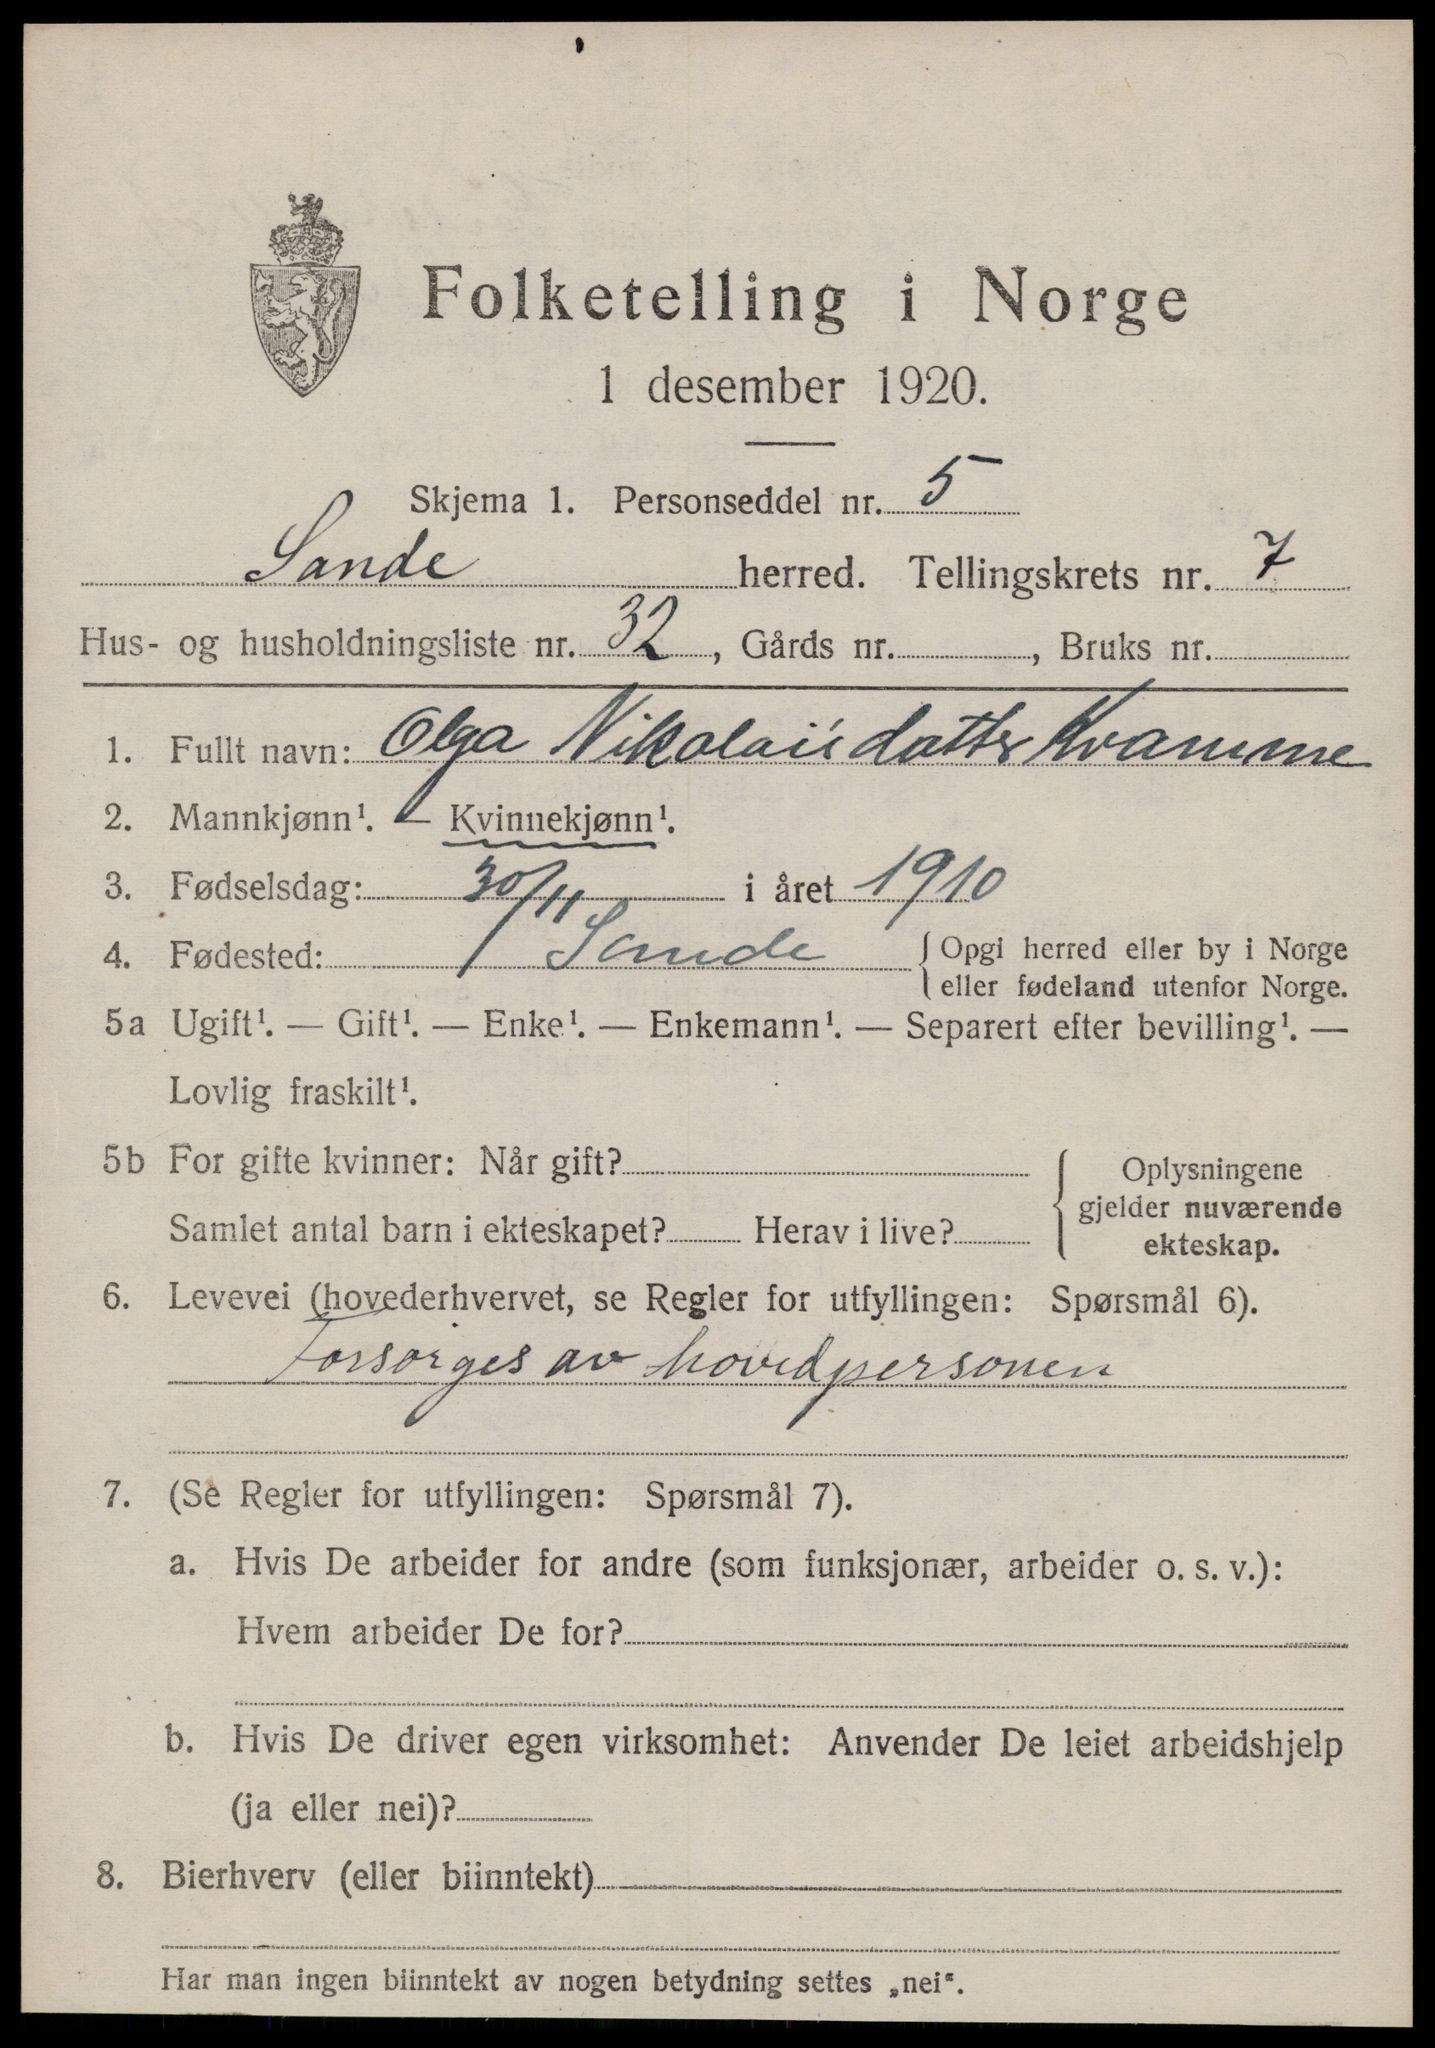 Folketelling i Norge
1 desember 1920.
Skjema 1. Personseddel nr. 5
Sande herred. Tellingskrets nr. 7
Hus- og husholdningsliste nr. 32, Gårds nr. , Bruks nr.
1. Fullt navn: Olga Nikolaisdatter Kvamme
2. Mannkjønn¹. — Kvinnekjønn¹.
3. Fødselsdag: 30/11 i året 1910
4. Fødested: Sande { Opgi herred eller by i Norge
eller fødeland utenfor Norge.
5a Ugift¹. — Gift¹. — Enke¹. — Enkemann¹. — Separert efter bevilling¹. —
Lovlig fraskilt¹.
5b For gifte kvinner: Når gift?
Samlet antal barn i ekteskapet? Herav i live?
{ Oplysningene
gjelder nuværende
ekteskap.
6. Levevei (hovederhvervet, se Regler for utfyllingen: Spørsmål 6).
Forsørges av hovedpersonen
7. (Se Regler for utfyllingen: Spørsmål 7).
a. Hvis De arbeider for andre (som funksjonær, arbeider o. s. v.):
Hvem arbeider De for?
b. Hvis De driver egen virksomhet: Anvender De leiet arbeidshjelp
(ja eller nei)?
8. Bierhverv (eller biinntekt)
Har man ingen biinntekt av nogen betydning settes „nei“.